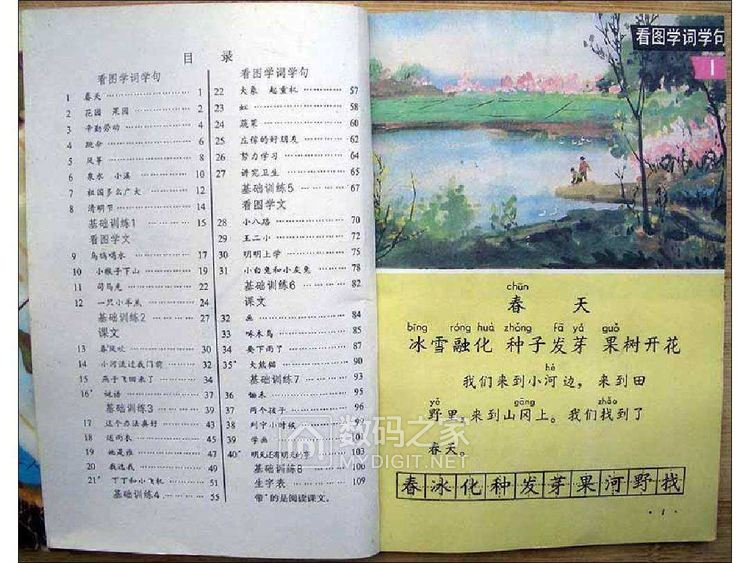 目 录
看图学词学句
1 春天 1
2 花园 果园 2
3 辛勤劳动 4
4 跳伞 6
5 风筝 8
6 泉水 小溪 10
7 祖国多么广大 12
8 清明节 14
基础训练1 15
看图学文
9 乌鸦喝水 17
10 小猴子下山 19
11 司马光 22
12 一只小羊羔 24
基础训练2 27
课文
13 春风吹 30
14 小河流过我门前 32
15 燕子飞回来了 34
16* 谜语 37
基础训练3 39
17 这个办法真好 43
18 送雨衣 45
19 她是谁 47
20 我选我 49
21* 丁丁和小飞机 51
基础训练4 55
看图学词学句
22 大象 起重机 57
23 虹 58
24 蔬菜 60
25 庄稼的好朋友 62
26 努力学习 64
27 讲究卫生 65
基础训练5 67
看图学文
28 小八路 70
29 王二小 72
30 明明上学 75
31 小白兔和小灰兔 78
基础训练6 82
课文
32 画 84
33 啄木鸟 85
34 要下雨了 87
35* 大熊猫 90
基础训练7 93
36 锄禾 96
37 两个孩子 97
38 列宁小时候 99
39 学画 101
40* 明天还有明天的事
基础训练8 106
生字表 109
带*的是阅读课文。
看图学词学句
1
chūn
春 天
bīng róng huà zhǒng fā yá guǒ
冰雪融化 种子发芽 果树开花
hé
我们来到小河边，来到田
yě gāng zhǎo
野里，来到山冈上。我们找到了
春天。
春冰化种发芽果河野找
·1·
数码之家
MYDIGIT.NET